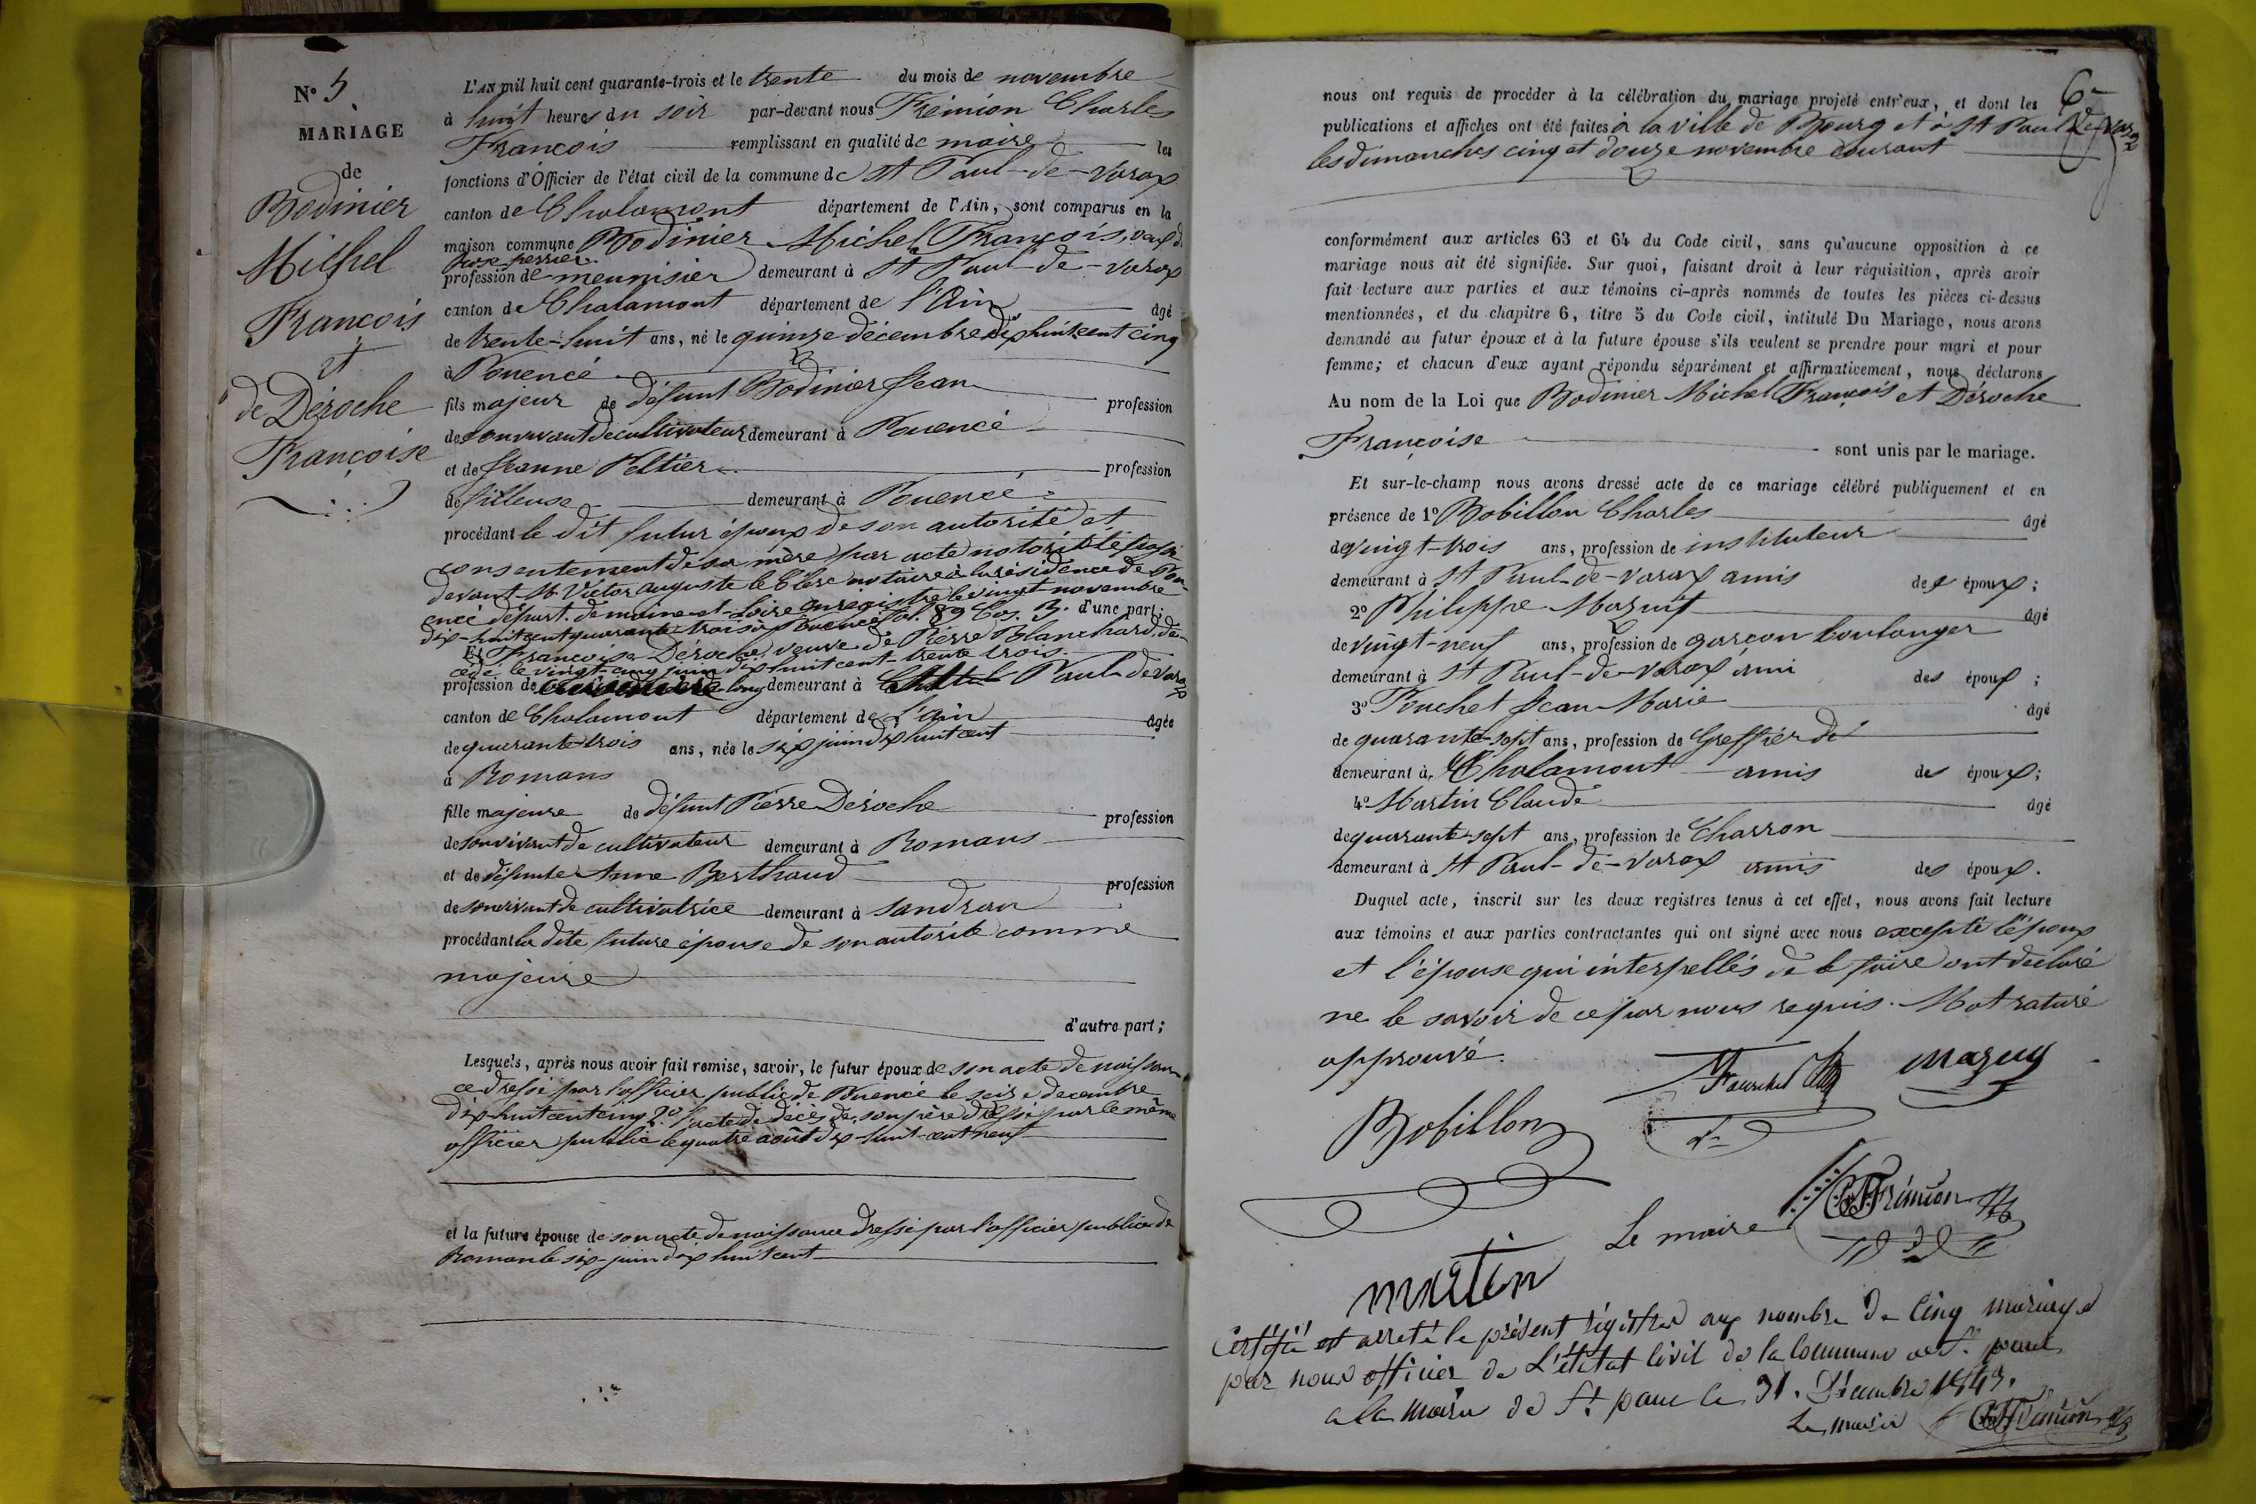 N° 5
MARIAGE
de
Bodinier
Michel
François
et
de Déroche
Françoise
L'AN mil huit cent quarante-trois et le trente du mois de novembre
à huit heures du soir par-devant nous Fréminon Charles
François remplissant en qualité de maire les
fonctions d'Officier de l'état civil de la commune de St Paul-de-Varax
canton de Chalamont département de l'Ain, sont comparus en la
maison commune Bodinier Michel François, veuf de
profession de meunisier demeurant à St Paul-de-Varax
canton de Chalamont département de l'Ain âgé
de trente-huit ans, né le quinze décembre dix huit cent cinq
à Pouencé
fils majeur de défunt Bodinier Jean profession
de son vivant de cultivateur demeurant à Pouencé
et de Jeanne Peltier profession
de filleuse demeurant à Pouencé
procédant le dit futur époux de son autorité et
consentement de sa mère par acte notorié
devant Mr Victor Auguste le Clerc notaire à la résidence de Pou-
encé départ. de maine-et-Loire enregistré le vingt novembre
dix-huit cent quarante trois à Pouencé fol. 89 Cas. 3. d'une part;
Et Françoise Déroche veuve de Pierre Blanchard, dé-
cédé le vingt-cinq juin dix huit cent-trente trois.
profession de demeurant à St Paul-de Varax
canton de Chalamont département de l'Ain âgée
de quarante-trois ans, née le six juin dix huit cent
à Romans
fille majeure de défunt Pierre Déroche profession
de son vivant de cultivateur demeurant à Romans
et de défunte Anne Berthaud profession
de son vivant de cultivatrice demeurant à Sandran
procédant la dite future épouse de son autorité comme
majeure
d'autre part;
Lesquels, après nous avoir fait remise, savoir, le futur époux de son acte de naissan-
ce dressé par l'officier public de Pouencé le seize décembre
dix-huit cent cinq 2° l'acte de décès de son père dressé par le même
officier public le quatre août dix-huit-cent neuf
et la future épouse de son acte de naissance dressé par l'officier public de
Romans le six juin dix huit cent
6e
nous ont requis de procéder à la célébration du mariage projeté entr'eux, et dont les
publications et affiches ont été faites à la ville de Bourg et à St Paul de Varax
les dimanches cinq et douze novembre courant
conformément aux articles 63 et 64 du Code civil, sans qu'aucune opposition à ce
mariage nous ait été signifiée. Sur quoi, faisant droit à leur réquisition, après avoir
fait lecture aux parties et aux témoins ci-après nommés de toutes les pièces ci-dessus
mentionnées, et du chapitre 6, titre 5 du Code civil, intitulé Du Mariage, nous avons
demandé au futur époux et à la future épouse s'ils veulent se prendre pour mari et pour
femme; et chacun d'eux ayant répondu séparément et affirmativement, nous déclarons
Au nom de la Loi que Bodinier Michel François et Déroche
Françoise sont unis par le mariage.
Et sur-le-champ nous avons dressé acte de ce mariage célébré publiquement et en
présence de 1° Bobillon Charles âgé
de vingt-trois ans, profession de instituteur
demeurant à St Paul-de-Varax amis des époux;
2° Philippe Mazuit âgé
de vingt-neuf ans, profession de garçon boulanger
demeurant à St Paul-de-Varax ami des époux;
3° Fouchet Jean Marie âgé
de quarante-sept ans, profession de Greffier de
demeurant à Chalamont amis des époux;
4° Martin Claude âgé
de quarante-sept ans, profession de Charron
demeurant à St Paul-de-Varax amis des époux.
Duquel acte, inscrit sur les deux registres tenus à cet effet, nous avons fait lecture
aux témoins et aux parties contractantes qui ont signé avec nous excepté l'époux
et l'épouse qui interpellés de le faire ont déclaré
ne le savoir de ce par nous requis. Mot raturé
approuvé.
Bobillon
Fouchet
Mazuy
Le maire Fréminon
martin
Certifié et arreté le présent régistre au nombre de Cinq mariages
par nous officier de L'étatat Civil de la Commune de St. paul
a la Mairie de St. paul le 31. Décembre 1843.
Le maire Fréminon